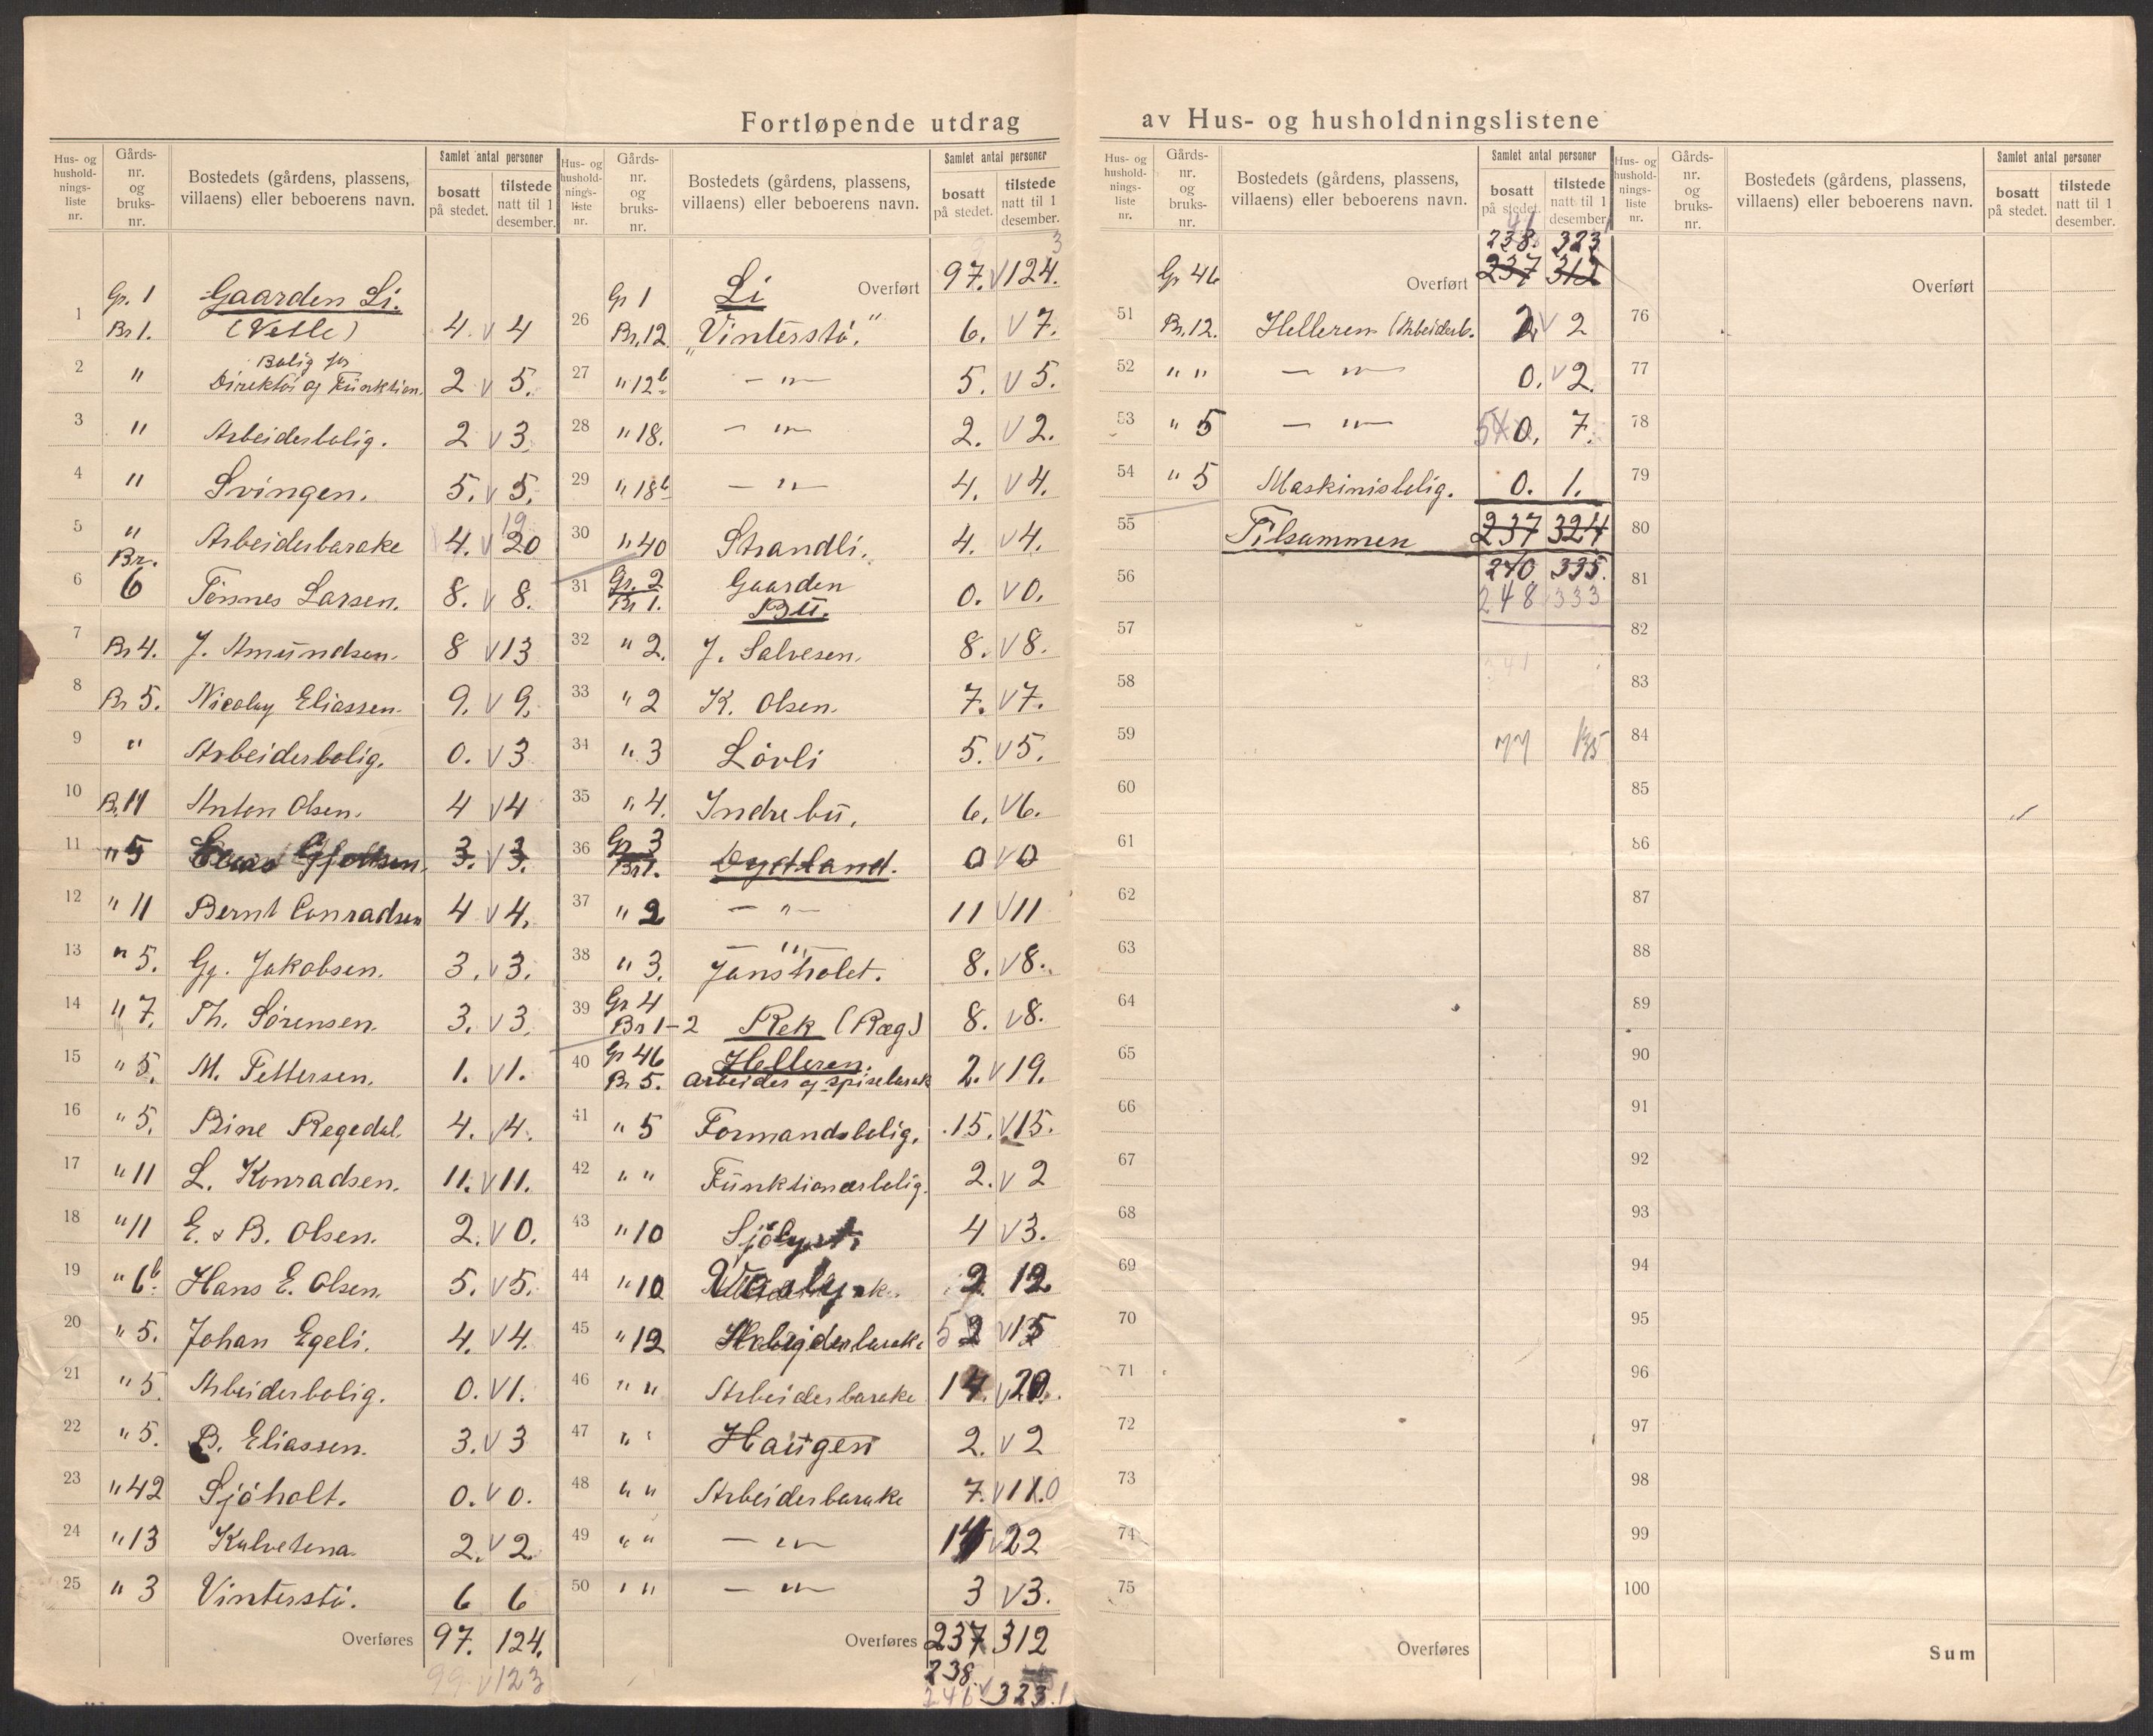 Fortløpende utdrag av Hus- og husholdningslistene
Hus- og hushold-nings-liste nr. | Gårds-nr. og bruks-nr. | Bostedets (gårdens, plassens, villaens) eller beboerens navn. | Samlet antal personer | bosatt på stedet. | tilstede natt til 1 desember.
Gr. 1 Gaarden Li.
1 Br 1. (Vetle) 4. v 4
2 " Bolig for Direktör og Funktion. 2 v 5.
3 " Arbeiderbolig. 2 v 3.
4 " Svingen. 5. v 5.
5 " Arbeiderbarake 4. v 20 19
6 Br. 6 Tönnes Larsen. 8. v 8.
7 Br 4. J. Amundsen. 8 v 13
8 Br 5. Nicolay Eliassen. 9. v 9.
9 " Arbeiderbolig. 0. v 3
10 Br. 11 Anton Olsen. 4 v 4
11 " 5 3. v 3.
12 " 11 Bernt Conradsen 4 v 4.
13 " 5. Gg. Jakobsen. 3. v 3.
14 " 7. Th. Sörensen. 3. v 3.
15 " 5. M. Tettersen. 1. v 1.
16 " 5. Bine Regedal. 4. v 4.
17 " 11 L. Konradsen. 11. v 11.
18 " 11 E. & B. Olsen. 2. v 0.
19 " 6b Hans E. Olsen. 5. v 5.
20 " 5. Johan Egeli. 4. v 4.
21 " 5 Arbeiderbolig. 0. v 1.
22 " 5. B. Eliassen. 3. v 3
23 " 42 Sjöholt. 0. v 0.
24 " 13 Kalvetona 2. v 2
25 " 3 Vinterstö. 6 6
Overføres 97. 124.
99 v 123
Hus- og hushold-nings-liste nr. | Gårds-nr. og bruks-nr. | Bostedets (gårdens, plassens, villaens) eller beboerens navn. | Samlet antal personer | bosatt på stedet. | tilstede natt til 1 desember.
Gr 1 Li Overført 97. v 124. 3
26 Br. 12 "Vinterstö." 6. v 7.
27 " 12b — " — 5. v 5.
28 " 18. — " — 2. v 2.
29 " 18b — " — 4. v 4.
30 " 40 Strandli. 4. v 4.
31 Gr. 2 Br 1. Gaarden Bu. 0. v 0.
32 " 2. J. Salvesen. 8. v 8.
33 " 2 K. Olsen. 7. v 7.
34 " 3 Lövli 5. v 5.
35 " 4. Indre bu. 6. v 6.
36 Gr. 3 Br 1. Dydland. 0 v 0
37 " 2 — " — 11 v 11
38 " 3. — " — Jansholet. 8. v 8.
39 Gr 4 Br 1-2 Rek (Ræg) 8. v 8.
40 Gr 46 Br 5. Helleren. Arbeider og spisebarak 2. v 19.
41 " 5 Formandsbolig. 15. v 15.
42 " " Funktionærbolig. 2. v 2
43 " 10 Sjölyst 4 v 3.
44 " 10 2 12
45 " 12 Arbeiderbarake 5 2 v 15
46 " " Arbeiderbarake 14. v 20.
47 " " Haugen 2. v 2
48 " " Arbeiderbarake 7. v 11.0
49 " " — " — 14 v 22
50 " " — " — 3 v 3.
Overføres 237 312
238
241 v 323.
Hus- og hushold-nings-liste nr. | Gårds-nr. og bruks-nr. | Bostedets (gårdens, plassens, villaens) eller beboerens navn. | Samlet antal personer | bosatt på stedet. | tilstede natt til 1 desember.
238. 323
Gr 46 Overført 237 312
51 Br. 12. Helleren (Arbeiderb. 2 v 2
52 " " — " — 0. v 2.
53 " 5 — " — 0. 7.
54 " 5 Maskinisbolig. 0. 1.
55 Tilsammen 237 324
56 240 335.
248 333
57
58
59 135
60
61
62
63
64
65
66
67
68
69
70
71
72
73
74
75
Overføres
Hus- og hushold-nings-liste nr. | Gårds-nr. og bruks-nr. | Bostedets (gårdens, plassens, villaens) eller beboerens navn. | Samlet antal personer | bosatt på stedet. | tilstede natt til 1 desember.
Overført
76
77
78
79
80
81
82
83
84
85
86
87
88
89
90
91
92
93
94
95
96
97
98
99
100
Sum